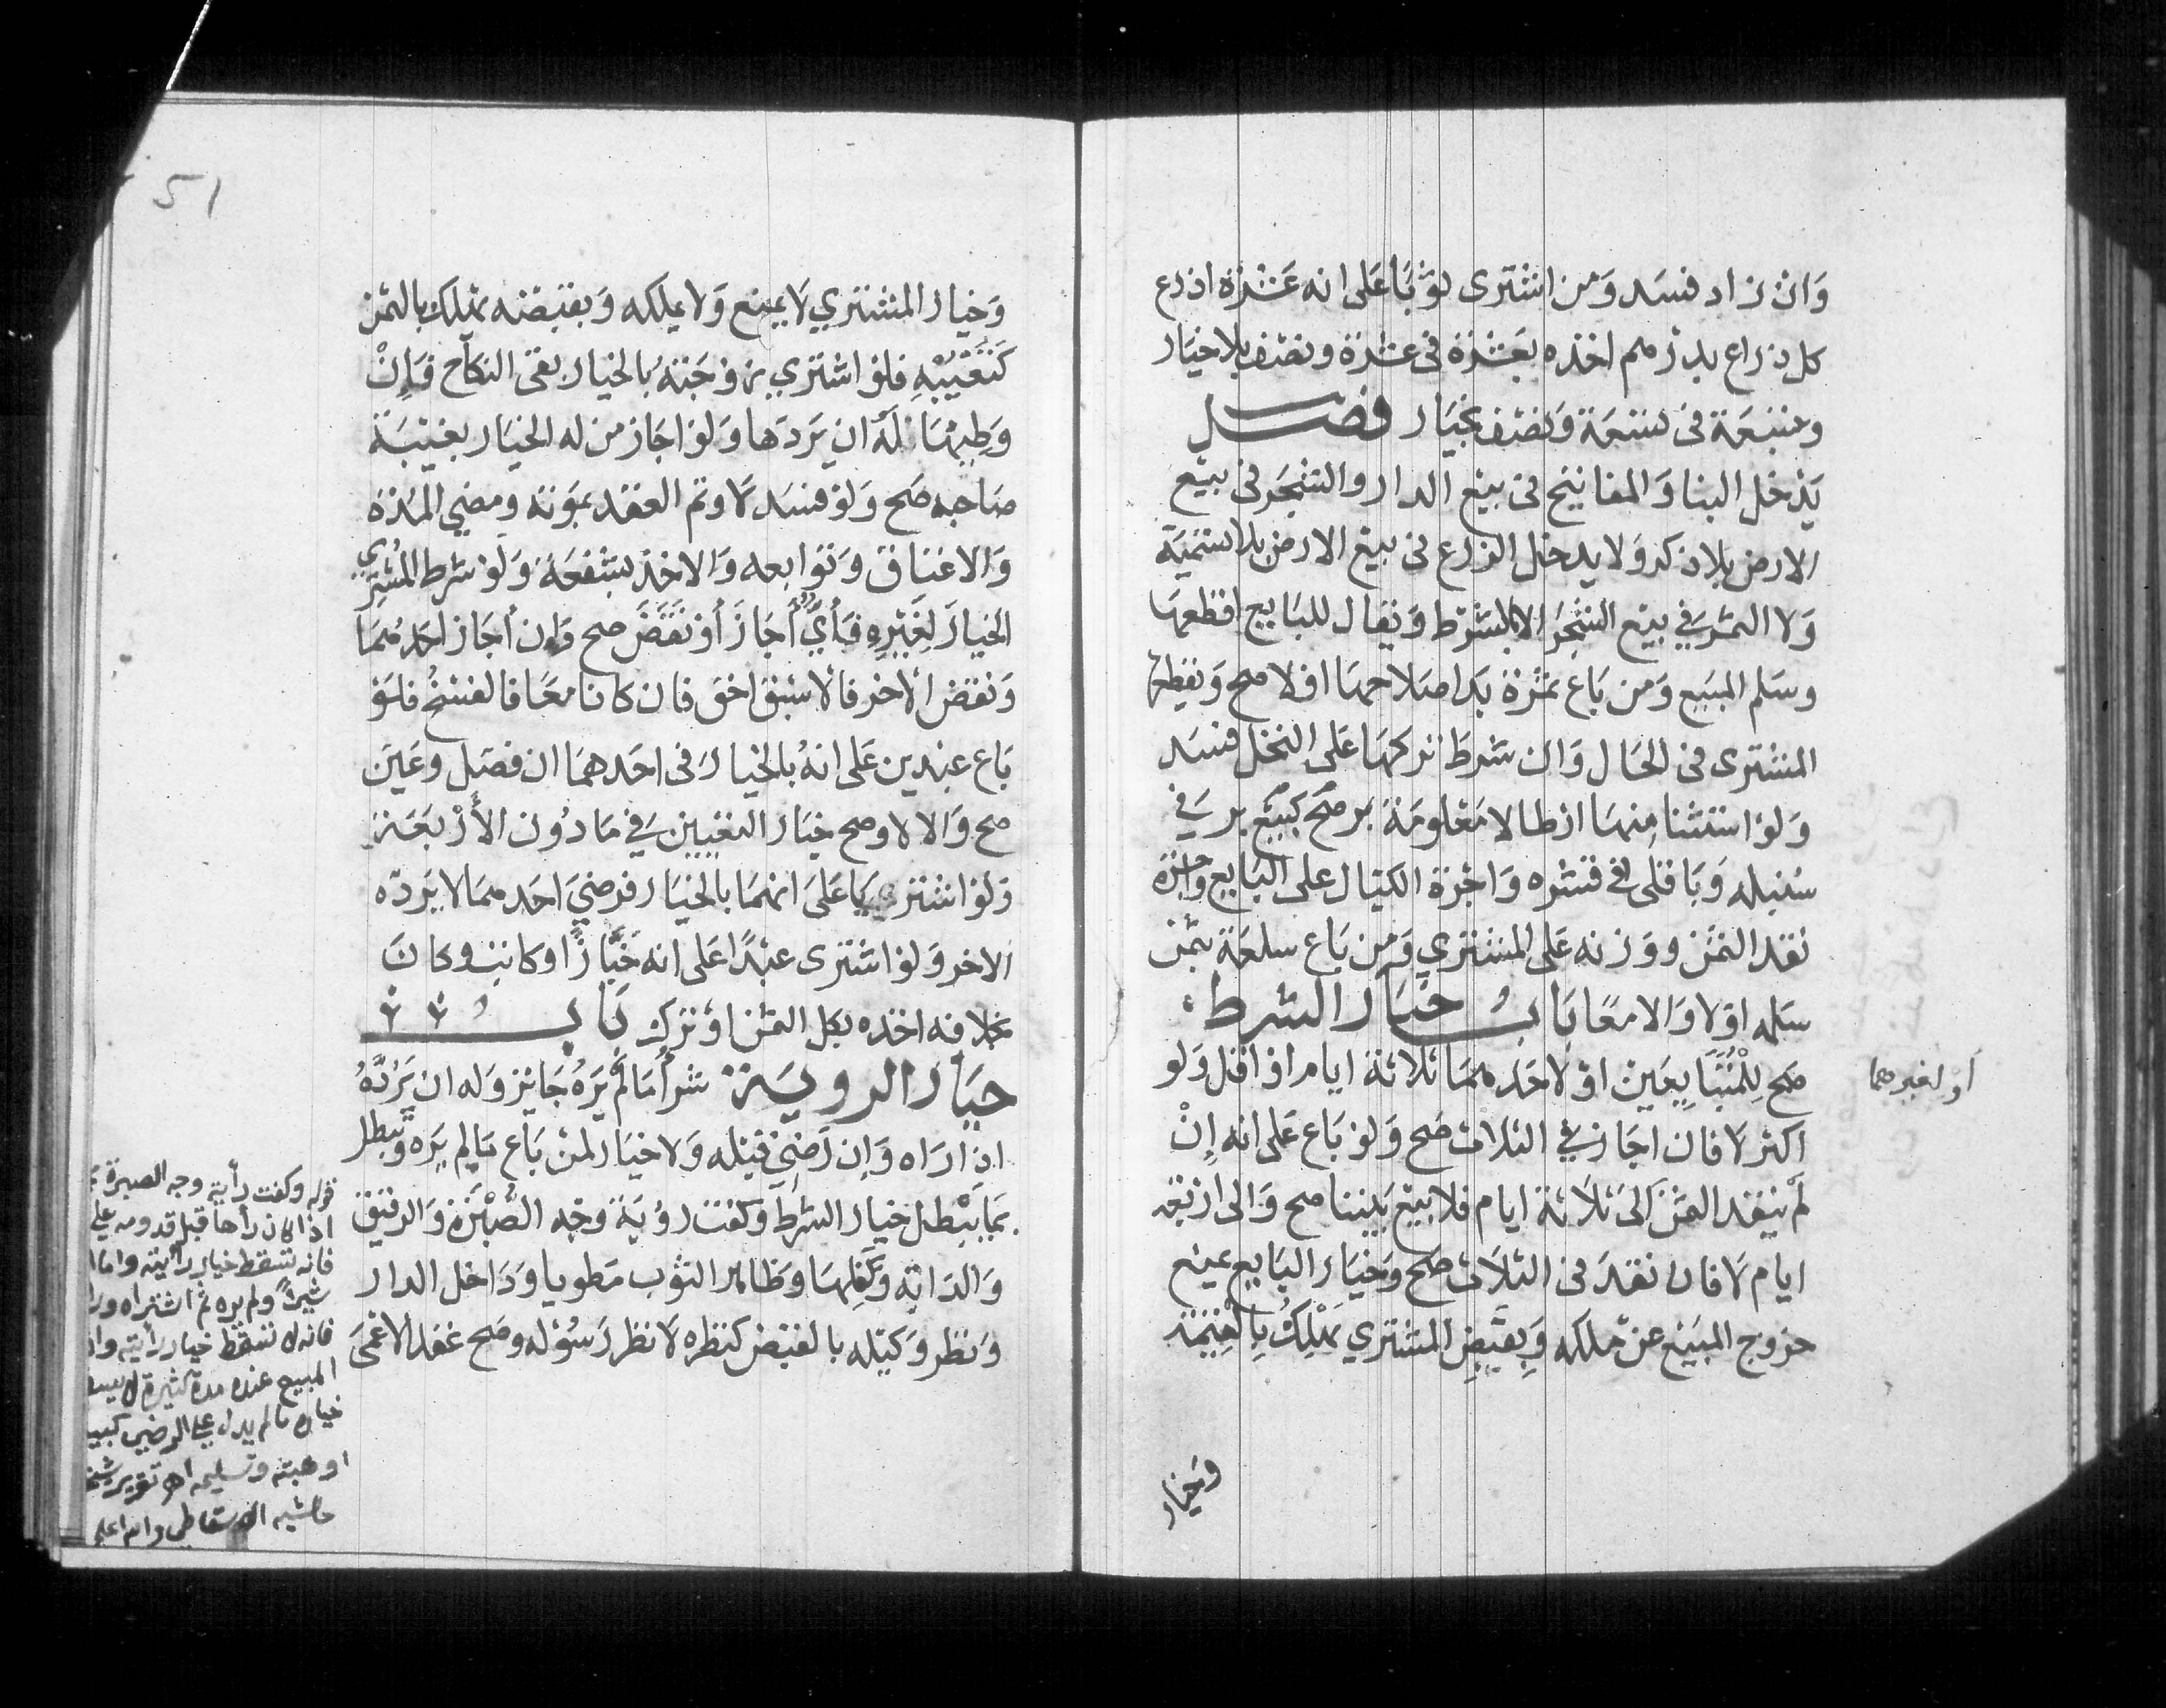 وان زاد فسد ومن اشترى ثوبا على انه عشرة اذرع
كل ذراع بدرهم اخذه بعشرة فى عشرة ونصف بلا خيار
وبتسعة فى تسعة ونصف بخيار فصل
يدخل البنا والمفاتيح فى بيع الدار والشجر فى بيع
الارض بلا ذكر ولا يدخل الزرع فى بيع الارض بلا تسمية
ولا الثمر في بيع الشجر الا بالشرط ويقال للبايع اقطعها
وسلم المبيع ومن باع ثمرة بدا صلاحها اولا صح ويقطعها
المشترى فى الحال وان شرط تركها على النخل فسد
ولو استثنا منها ارطالا معلومة صح كبيع بر في
سنبله وباقلى في قشره واجرة الكيال على البايع واجرة
نقد الثمن ووزنه على المشتري ومن باع سلعة بثمن
سلمه اولا والا معا باب خيار الشرط
صح للمتبايعين او لاحدهما ثلاثة ايام او اقل ولو
او لغيرهما
اكثر لا فان اجاز في الثلاث صح ولو باع على انه إن
لم ينقد الثمن الى ثلاثة ايام فلا بيع بيننا صح والى اربعة
ايام لا فان نقد فى الثلاث صح وخيار البايع يمنع
خروج المبيع عن ملكه وبقبض المشتري يملك بالقيمة
وخيار
51
وخيار المشتري لا يمنع ولا يملكه وبقبضه يملك بالثمن
كتعيبه فلو اشتري زوجته بالخيار بقى النكاح فإن
وطيها له ان يردها ولو اجاز من له الخيار بغيبة
صاحبه صح ولو فسد لا وتم العقد بموته ومضي المدة
والاعتاق وتوابعه والاخذ بشفعة ولو شرط المشتري
الخيار لغيره فأي أجاز أو نقض صح وإن أجاز احدهما
ونقض الاخر فالاسبق احق فان كانا معا فالفسخ فلو
باع عبدين على انه بالخيار فى احدهما ان فصل وعين
صح والا لا وصح خيار التعيين في ما دون الأربعة
ولو اشتريا على انهما بالخيار فرضي احدهما لا يرده
الاخر ولو اشترى عبدا على انه خباز او كاتب وكان
بخلافه اخذه بكل الثمن او ترك باب
خيار الروية شرأ ما لم يره جايز وله ان يرده
اذا راه وان رضي قبله ولا خيار لمن باع ما لم يره ويبطل
بما يبطل خيار الشرط وكفت روية وجه الصبرة والرقيق
والدابة وكفلها وظاهر الثوب مطويا وداخل الدار
ونظر وكيله بالقبض كنظره لا نظر رسوله وصح عقد الاعمى
قوله وكفت رأية وجه الصبرة
اذا كان رأها قبل قدومه على
فانه تسقط خيار رأيته واما
شيئ ولم يره ثم اشتراه
فانه لا تسقط خيار رأيته
المبيع عنده مدة كثيرة لا
خياره ما لم يدل على الرضي
او هبته وتسليمه اهـ تقرير
حاشيه والله اعلم